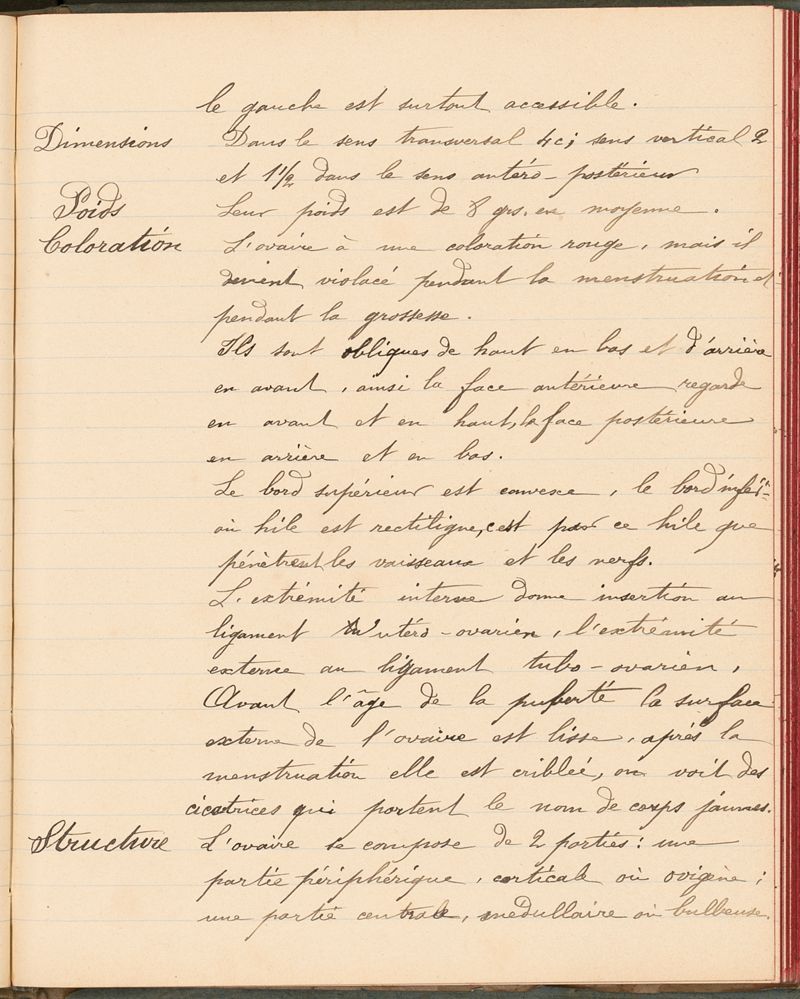 le gauche est surtout accessible.
Dimensions Dans le sens transversal 4c; sens vertical 2
et 1 1/2 dans le sens antéro-postérieur
Poids Leur poids est de 8 grs. en moyenne.
Coloration L'ovaire à une coloration rouge, mais il
devient violacé pendant la menstruation et
pendant la grossesse.
Ils sont obliques de haut en bas et d'arrière
en avant, ainsi la face antérieure regarde
en avant et en haut, la face postérieure
en arrière et en bas.
Le bord supérieur est convexe, le bord
ou hile est rectiligne, c'est par ce hile que
pénètrent les vaisseaux et les nerfs.
L'extrémité interne donne insertion au
ligament utéro-ovarien, l'extrémité
externe au ligament tubo-ovarien,
Avant l'âge de la puberté la surface
externe de l'ovaire est lisse, après la
menstruation elle est criblée, on voit des
cicatrices qui portent le nom de corps jaunes.
Structure L'ovaire se compose de 2 parties: une
partie périphérique, corticale ou ovigène;
une partie centrale, médullaire ou bulbeuse.